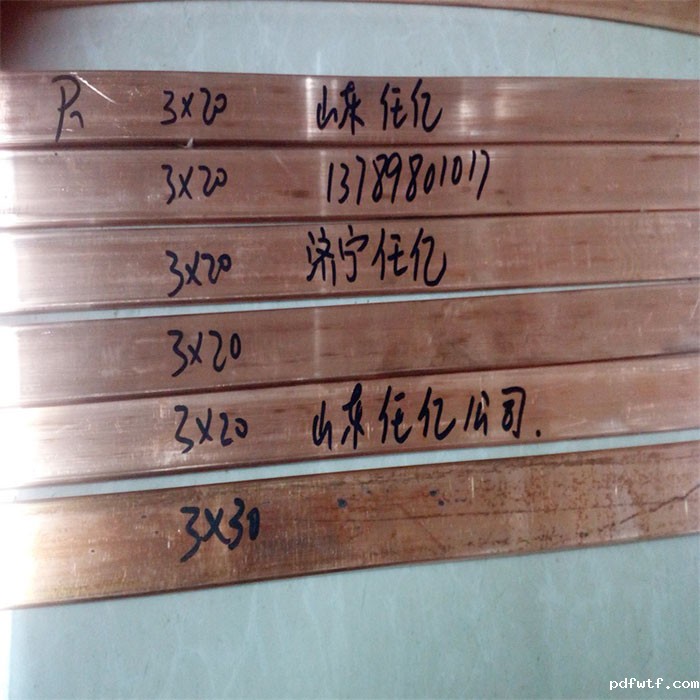 3×20 山东任亿
3×20 13789801017
3×20 济宁任亿
3×20
3×20 山东任亿公司.
3×30
pdfwtf.com